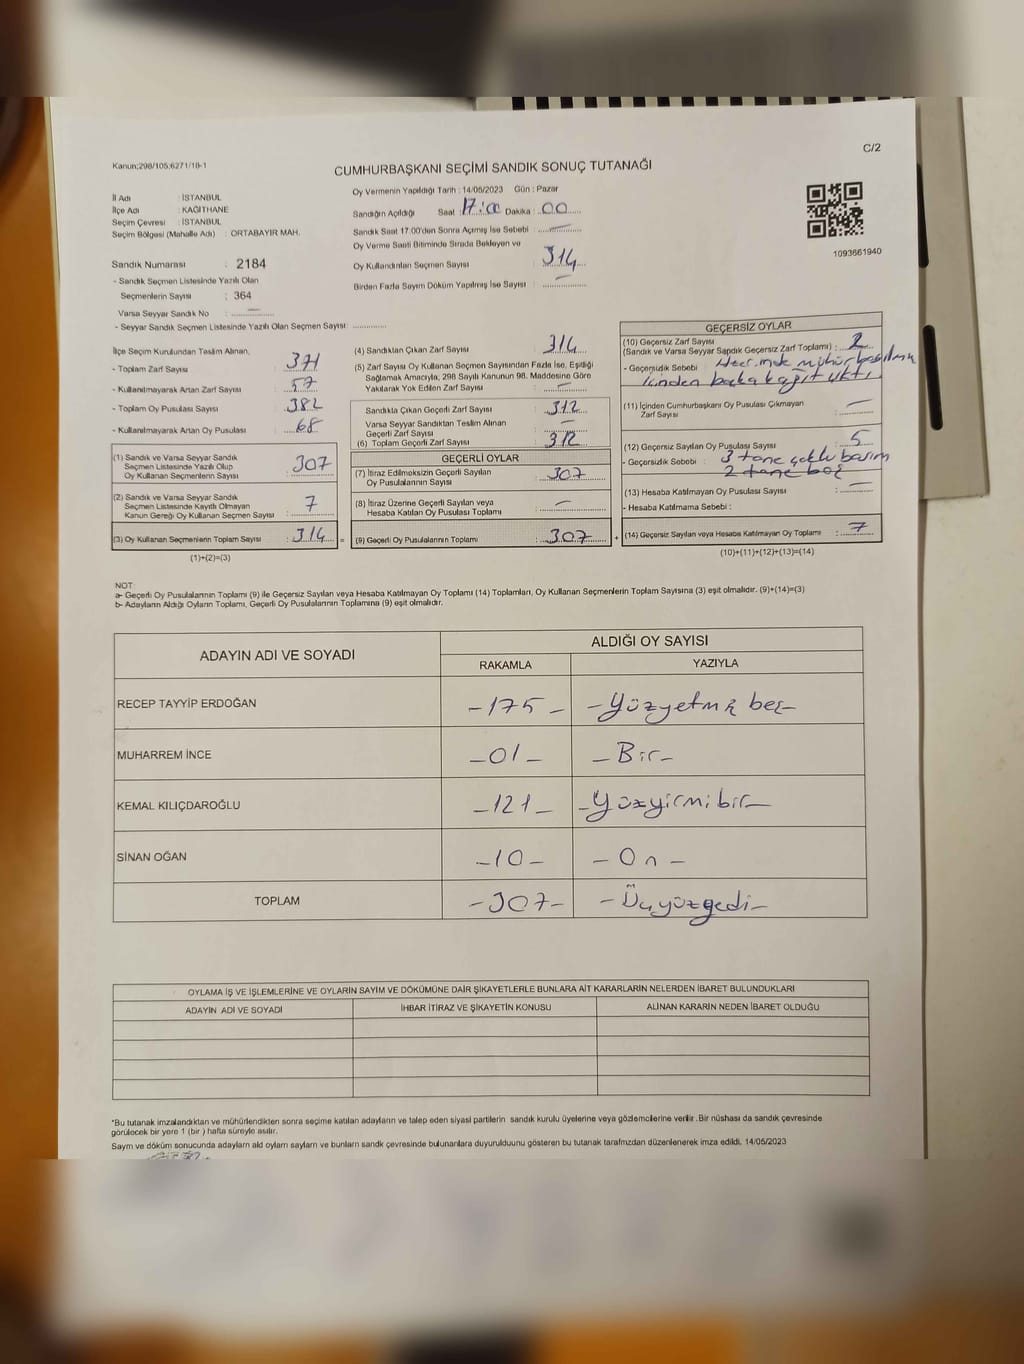 C/2
Kanun;298/105;6271/18-1
CUMHURBAŞKANI SEÇİMİ SANDIK SONUÇ TUTANAĞI
İl Adı : İSTANBUL
İlçe Adı : KAĞITHANE
Seçim Çevresi : İSTANBUL
Seçim Bölgesi (Mahalle Adı) : ORTABAYIR MAH.
Sandık Numarası : 2184
- Sandık Seçmen Listesinde Yazılı Olan
Seçmenlerin Sayısı : 364
Varsa Seyyar Sandık No : —
- Seyyar Sandık Seçmen Listesinde Yazılı Olan Seçmen Sayısı: ..............
Oy Vermenin Yapıldığı Tarih : 14/05/2023 Gün : Pazar
Sandığın Açıldığı Saat : 17:00 Dakika : 00
Sandık Saat 17.00'den Sonra Açımış İse Sebebi : —
Oy Verme Saati Bitiminde Sırada Bekleyen ve
Oy Kullandırılan Seçmen Sayısı : 314
Birden Fazla Sayım Döküm Yapılmış İse Sayısı : —
1093661940
İlçe Seçim Kurulundan Teslim Alınan,
- Toplam Zarf Sayısı : 371
- Kullanılmayarak Artan Zarf Sayısı : 57
- Toplam Oy Pusulası Sayısı : 382
- Kullanılmayarak Artan Oy Pusulası : 68
(1) Sandık ve Varsa Seyyar Sandık
Seçmen Listesinde Yazılı Olup
Oy Kullanan Seçmenlerin Sayısı : 307
(2) Sandık ve Varsa Seyyar Sandık
Seçmen Listesinde Kayıtlı Olmayan
Kanun Gereği Oy Kullanan Seçmen Sayısı : 7
(3) Oy Kullanan Seçmenlerin Toplam Sayısı : 314 =
(1)+(2)=(3)
(4) Sandıktan Çıkan Zarf Sayısı : 314
(5) Zarf Sayısı Oy Kullanan Seçmen Sayısından Fazla İse, Eşitliği
Sağlamak Amacıyla, 298 Sayılı Kanunun 98. Maddesine Göre
Yakılarak Yok Edilen Zarf Sayısı : —
Sandıkta Çıkan Geçerli Zarf Sayısı : 312
Varsa Seyyar Sandıktan Teslim Alınan
Geçerli Zarf Sayısı : —
(6) Toplam Geçerli Zarf Sayısı : 312
GEÇERLİ OYLAR
(7) İtiraz Edilmeksizin Geçerli Sayılan
Oy Pusulalarının Sayısı : 307
(8) İtiraz Üzerine Geçerli Sayılan veya
Hesaba Katılan Oy Pusulası Toplamı : —
(9) Geçerli Oy Pusulalarının Toplamı : 307 +
GEÇERSİZ OYLAR
(10) Geçersiz Zarf Sayısı
(Sandık ve Varsa Seyyar Sandık Geçersiz Zarf Toplamı) : 2
- Geçersizlik Sebebi : mühür basılmış
içinden başka kağıt çıktı
(11) İçinden Cumhurbaşkanı Oy Pusulası Çıkmayan
Zarf Sayısı : —
(12) Geçersiz Sayılan Oy Pusulası Sayısı : 5
- Geçersizlik Sebebi : 3 tane çoklu basım
2 tane boş
(13) Hesaba Katılmayan Oy Pusulası Sayısı : —
- Hesaba Katılmama Sebebi :
(14) Geçersiz Sayılan veya Hesaba Katılmayan Oy Toplamı : 7
(10)+(11)+(12)+(13)=(14)
NOT
a- Geçerli Oy Pusulalarının Toplamı (9) ile Geçersiz Sayılan veya Hesaba Katılmayan Oy Toplamı (14) Toplamları, Oy Kullanan Seçmenlerin Toplam Sayısına (3) eşit olmalıdır. (9)+(14)=(3)
b- Adayların Aldığı Oyların Toplamı, Geçerli Oy Pusulalarının Toplamına (9) eşit olmalıdır.
ADAYIN ADI VE SOYADI
ALDIĞI OY SAYISI
RAKAMLA YAZIYLA
RECEP TAYYİP ERDOĞAN -175- -Yüzyetmiş beş-
MUHARREM İNCE -01- -Bir-
KEMAL KILIÇDAROĞLU -121- -Yüzyirmibir-
SİNAN OĞAN -10- -On-
TOPLAM -307- -Üçyüzyedi-
OYLAMA İŞ VE İŞLEMLERİNE VE OYLARIN SAYIM VE DÖKÜMÜNE DAİR ŞİKAYETLERLE BUNLARA AİT KARARLARIN NELERDEN İBARET BULUNDUKLARI
ADAYIN ADI VE SOYADI İHBAR İTİRAZ VE ŞİKAYETİN KONUSU ALINAN KARARIN NEDEN İBARET OLDUĞU
*Bu tutanak imzalandıktan ve mühürlendikten sonra seçime katılan adayların ve talep eden siyasi partilerin sandık kurulu üyelerine veya gözlemcilerine verilir .Bir nüshası da sandık çevresinde
görülecek bir yere 1 (bir ) hafta süreyle asılır.
Sayım ve döküm sonucunda adayların ald oyların sayların ve bunların sandık çevresinde bulunanlara duyurulduunu gösteren bu tutanak tarafmzdan düzenlenerek imza edildi. 14/05/2023